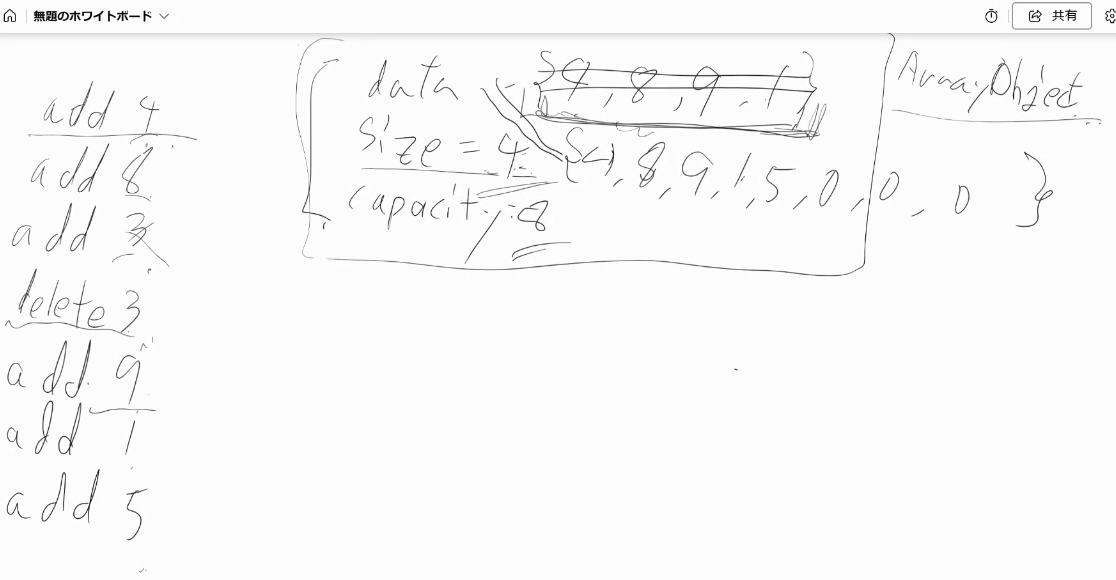 無題のホワイトボード
共有
add 4
add 8
add 3
delete 3
add 9
add 1
add 5
data
{4, 8, 9, 1}
size = 4
{4, 8, 9, 1, 5, 0, 0, 0 }
capacity = 8
ArrayObject